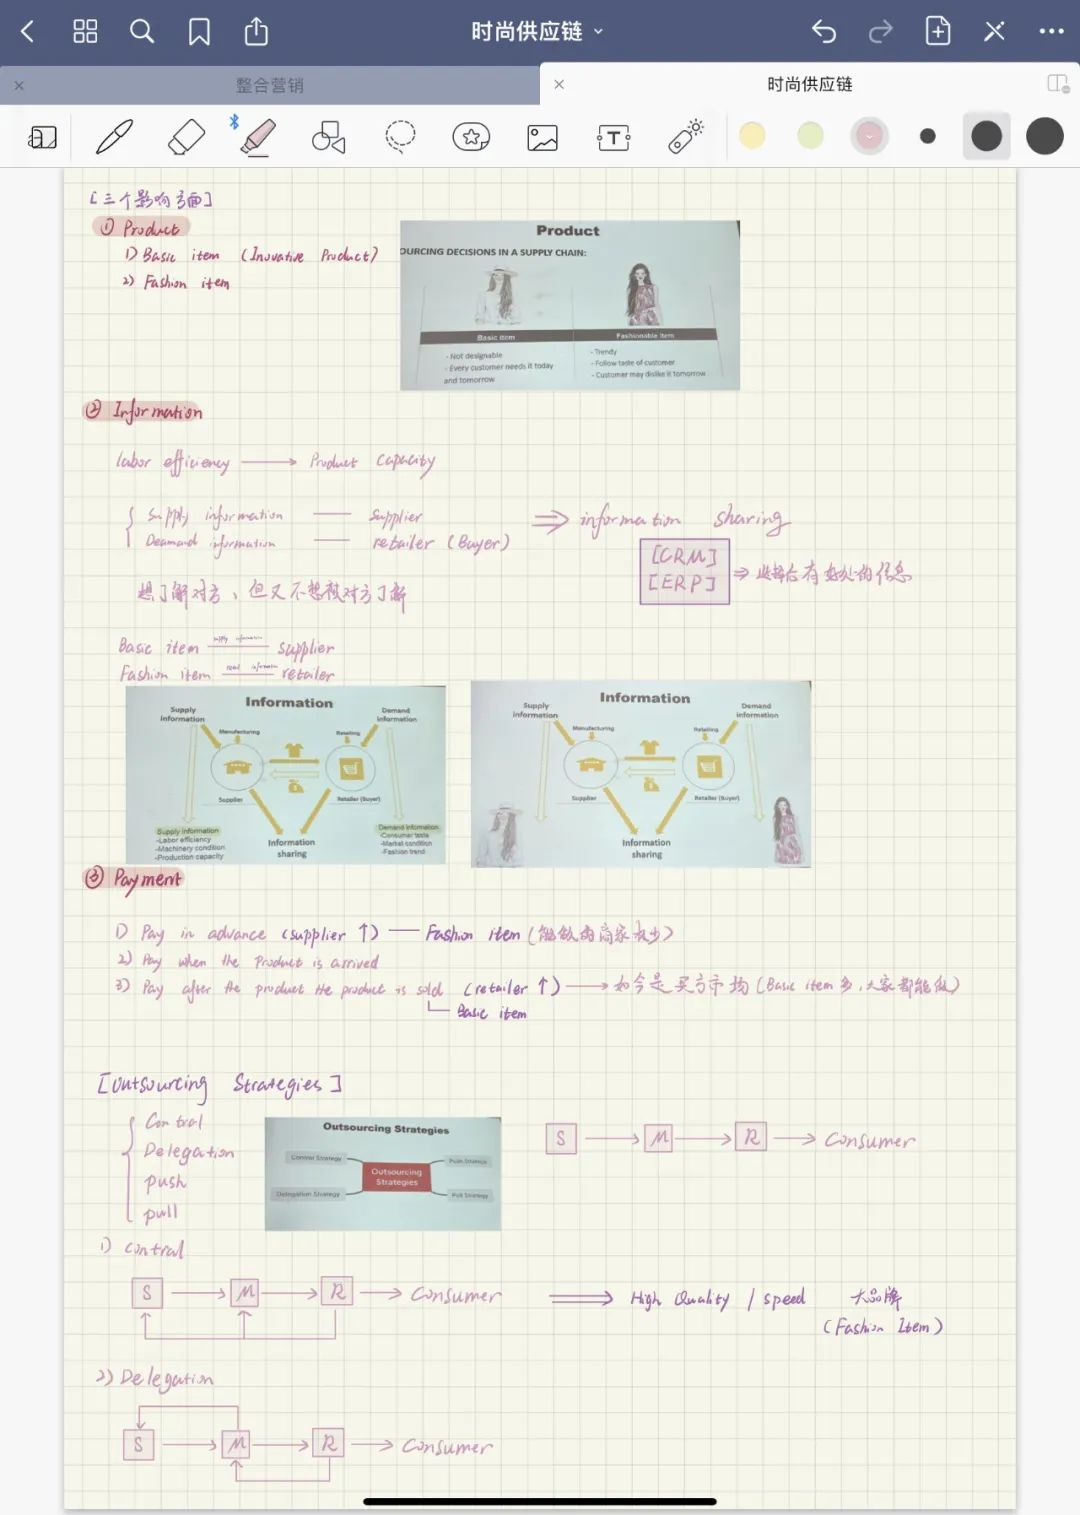 时尚供应链
整合营销
时尚供应链
[三个影响方面]
① Product
1) Basic item (Inovative Product)
2) Fashion item
Product
OURCING DECISIONS IN A SUPPLY CHAIN:
Basic item
Fashionable item
- Not designable
- Every customer needs it today
and tomorrow
- Trendy
- Follow taste of customer
- Customer may dislike it tomorrow
② Information
labor efficiency → Product capacity
Supply information — Supplier
Deamand information — retailer (Buyer)
⇒ information sharing
[CRM]
[ERP]
⇒ 选择后有好处的信息
想了解对方、但又不想被对方了解
Basic item supply information supplier
Fashion item retailer
Information
Supply
information
Demand
information
Manufacturing
Retailing
Supplier
Retailer (Buyer)
Supply information
-Labor efficiency
-Machinery condition
-Production capacity
Information
sharing
Demand information
-Consumer taste
-Market condition
-Fashion trend
Information
Supply
information
Demand
information
Manufacturing
Retailing
Supplier
Retailer (Buyer)
Information
sharing
③ Payment
1) Pay in advance (supplier ↑) — Fashion item (能做的商家较少)
2) Pay when the Product is arrived
3) Pay after the product the product is sold (retailer ↑) → 如今是买方市场 (Basic item 多,大家都能做)
Basic item
[Outsourcing Strategies]
Contral
Delegation
push
pull
Outsourcing Strategies
Control Strategy
Push Strategy
Outsourcing
Strategies
Delegation Strategy
Pull Strategy
S → M → R → Consumer
1) Contral
S → M → R → Consumer ⇒ High Quality / speed 大品牌
(Fashion Item)
2) Delegation
S → M → R → Consumer